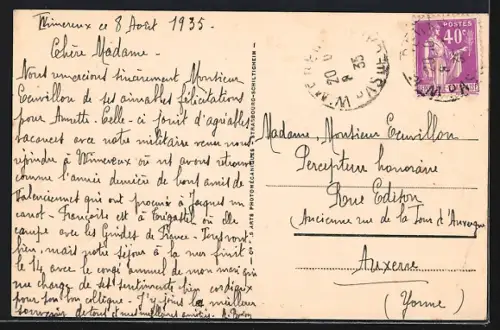 Wimereux ce 8 Août 1935.
Chère Madame -
Nous remercions sincèrement Monsieur
Ecuvillon de ses aimables félicitations
pour Annette. Celle-ci jouit d'agréables
vacances avec notre militaire venu nous
rejoindre à Wimereux où nous avons retrouvé
comme l'année dernière de bons amis de
Valenciennes qui ont procuré à Jacques un
canot - Françoise est à Trégastel où elle
campe avec les Guides de France - Tout va
bien, mais notre séjour à la mer finit
le 14 avec le congé annuel de mon mari qui
me charge de ses sentiments bien cordiaux
pour son collègue - J'y joins le meilleur
souvenir de tous et mes meilleures amitiés -
ARTS PHOTOMÉCANIQUES - STRASBOURG-SCHILTIGHEIM
WIMEREUX
20
8
35
POSTES
40c
Madame, Monsieur Ecuvillon
Percepteur honoraire
Rue Edison
(Ancienne rue de la Tour d'Auvergne
Auxerre
(Yonne)